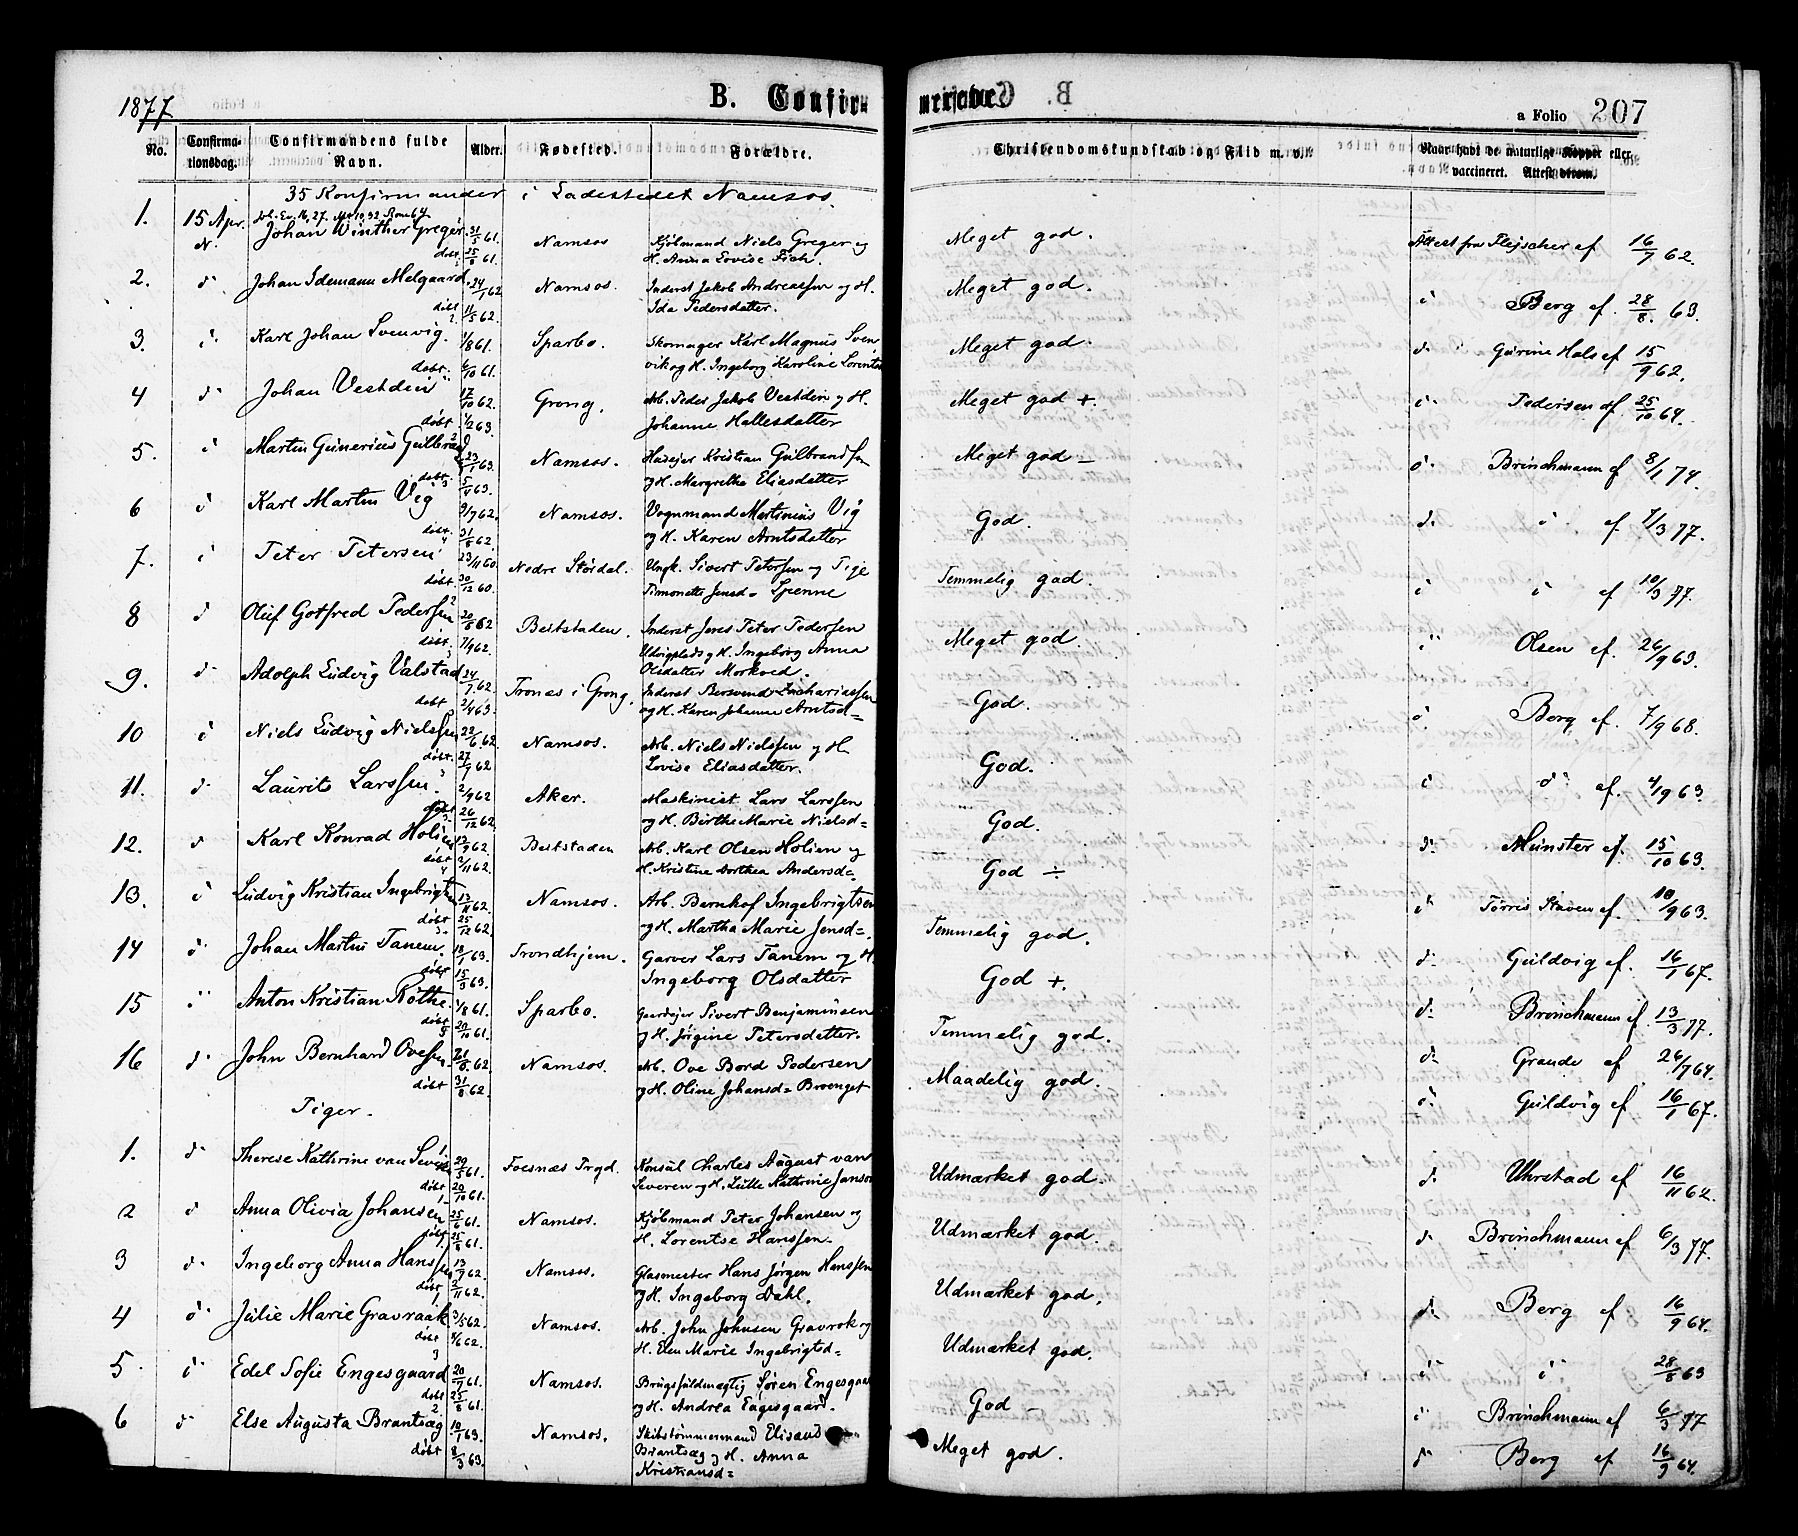 1877
B. Confirmerede.
a Folio 207
No. Confirmationsdag. Confirmandens fulde Navn. Alder. Fødested. Forældre. Christendomskundskab og Flid m. v. Naar havt de naturlige Kopper eller vaccineret. Attest derom.
35 Konfirmander i Ladestedet Namsos.
1. 15 Apr. Johan Winther Greger 31/5 61. Namsos Kjøbmand Niels Greger og Meget god. Attest fra Flejscher af 16/7 62.
N. døbt 25/8 61. H. Anna Lovise Fich.
2. do Johan Idemann Melgaard 24/1 62 Namsos. Inderst Jakob Andreassen og H. Meget god. do Berg af 28/8 63.
døbt 11/5 62. Ida Pedersdatter.
3. do Karl Johan Svenvig. 1/8 61. Sparbo. Skomager Karl Magnus Sven Meget god. do Gurine Hals af 15/9 62.
døbt 6/10 61. vik og H. Ingeborg Karoline Lorents
4 do Johan Vestdein 17/10 62. Grong. Arb. Peder Jakob Vestdein og H. Meget god +. do Pedersen af 25/10 64.
døbt 1/2 63. Johanne Hallesdatter
5. do Martin Gunerius Gulbrand 23/1 63. Namsos. Huseier Kristian Gulbrandsen Meget god – do Brinchmann af 8/1 74.
døbt 5/4 63. og H. Margrethe Eliasdatter
6 do Karl Martin Vig 9/7 62. Namsos. Vognmand Martinius Vig God. do do af 7/3 77.
døbt 31/8 62. og H. Karen Arntsdatter
7. do Peter Petersen 23/11 60. Nedre Størdal. Ungk. Sivert Petersen og Pige Temmelig god. do do af 10/3 77.
døbt 30/12 60. Timonette Jensd= Spenne
8 do Oluf Gotfred Pedersen 20/8 62 Beitstaden. Inderst Jens Peter Pedersen Meget god. do Olsen af 26/9 63.
døbt 7/9 62. Udvigplads og H. Ingeborg Anna
Olsdatter Morkved.
9. do Adolph Ludvig Valstad 24/7 62. Tronæs i Grong. Inderst Bersvend Zachariassen God. do Berg af 7/9 68.
døbt 2/4 63. og H. Karen Johanne Arntsd=
10 do Niels Ludvig Nielsen 22/6 62. Namsos. Arb. Niels Nielssen og H. God. do do af 4/9 63.
døbt 27/7 62 Lovise Eliasdatter.
11. do Laurits Larssen. 2/9 62 Aker. Maskinist Lars Larssen God. do Munster af 15/10 63.
døbt 26/12 62. og H. Birthe Marie Nielsd=
12. do Karl Konrad Holien 13/9 62. Beitstaden Arb. Karl Olsen Holien og God ÷ do Tørris Staven af 10/9 63.
døbt 2/11 62. H. Kristine Dorthea Andersd=
13. do Ludvig Kristian Ingebrigtsen 13/11 62. Namsos. Arb. Bernhof Ingebrigtsen Temmelig god. do Guldvig af 16/1 67.
døbt 25/12 62. og H. Martha Marie Jensd=.
14 do Johan Martin Tanem. 18/1 63. Trondhjem. Garver Lars Tanem og H. God +. do Brinchmann af 13/3 77.
døbt 15/3 63. Ingeborg Olsdatter
15 do Anton Kristian Røthe. 1/8 61. Sparbo. Gaardejer Sivert Benjaminsen Temmelig god. do Grande af 26/7 64.
døbt 20/10 61. og H. Jørgine Petersdatter.
16 do John Bernhard Ovesen 21/8 62. Namsos. Arb. Ove Bord Pedersen Maadelig god. do Guldvig af 16/1 67.
døbt 31/8 62. og H. Oline Johansd= Brænget
Piger.
1. do Therese Kathrine van Severen 20/5 61. Foesnæs Prgd. Konsul Charles August van Udmærket god. do Uhrstad af 16/11 62.
døbt 20/10 61. Severen og H. Lulle Kathrine Janson
2 do Anna Olivia Johansen 25/6 61. Namsos. Kjøbmand Peter Johansen og Udmærket god. do Brinchmann af 6/3 77.
døbt 25/8 61. H. Lorentse Hanssen.
3 do Ingeborg Anna Hanssen 13/9 62. Namsos. Glasmester Hans Jørgen Hanssen Udmærket god. do Berg af 16/9 64.
døbt 2/11 62. og H. Ingeborg Dahl.
4 do Julie Marie Gravraak 3/5 62. Namsos. Arb. John Johnsen Gravrok og Udmærket god. do do 28/8 63
døbt 9/6 62. H. Elen Marie Ingebrigtsd=
5 do Edel Sofie Engesgaard 20/7 61. Namsos. Brugsfuldmægtig Søren Engesgaa God – do Brinchmann af 6/3 77
døbt 25/8 61. og H. Andrea Engesgaard.
6 do Else Augusta Brantsæg 10/1 63. Namsos. Skibstømmermand Elisæus Meget god. do Berg af 16/9 64.
døbt 8/3 63. Brantsæg og H. Anna
Kristiansd=